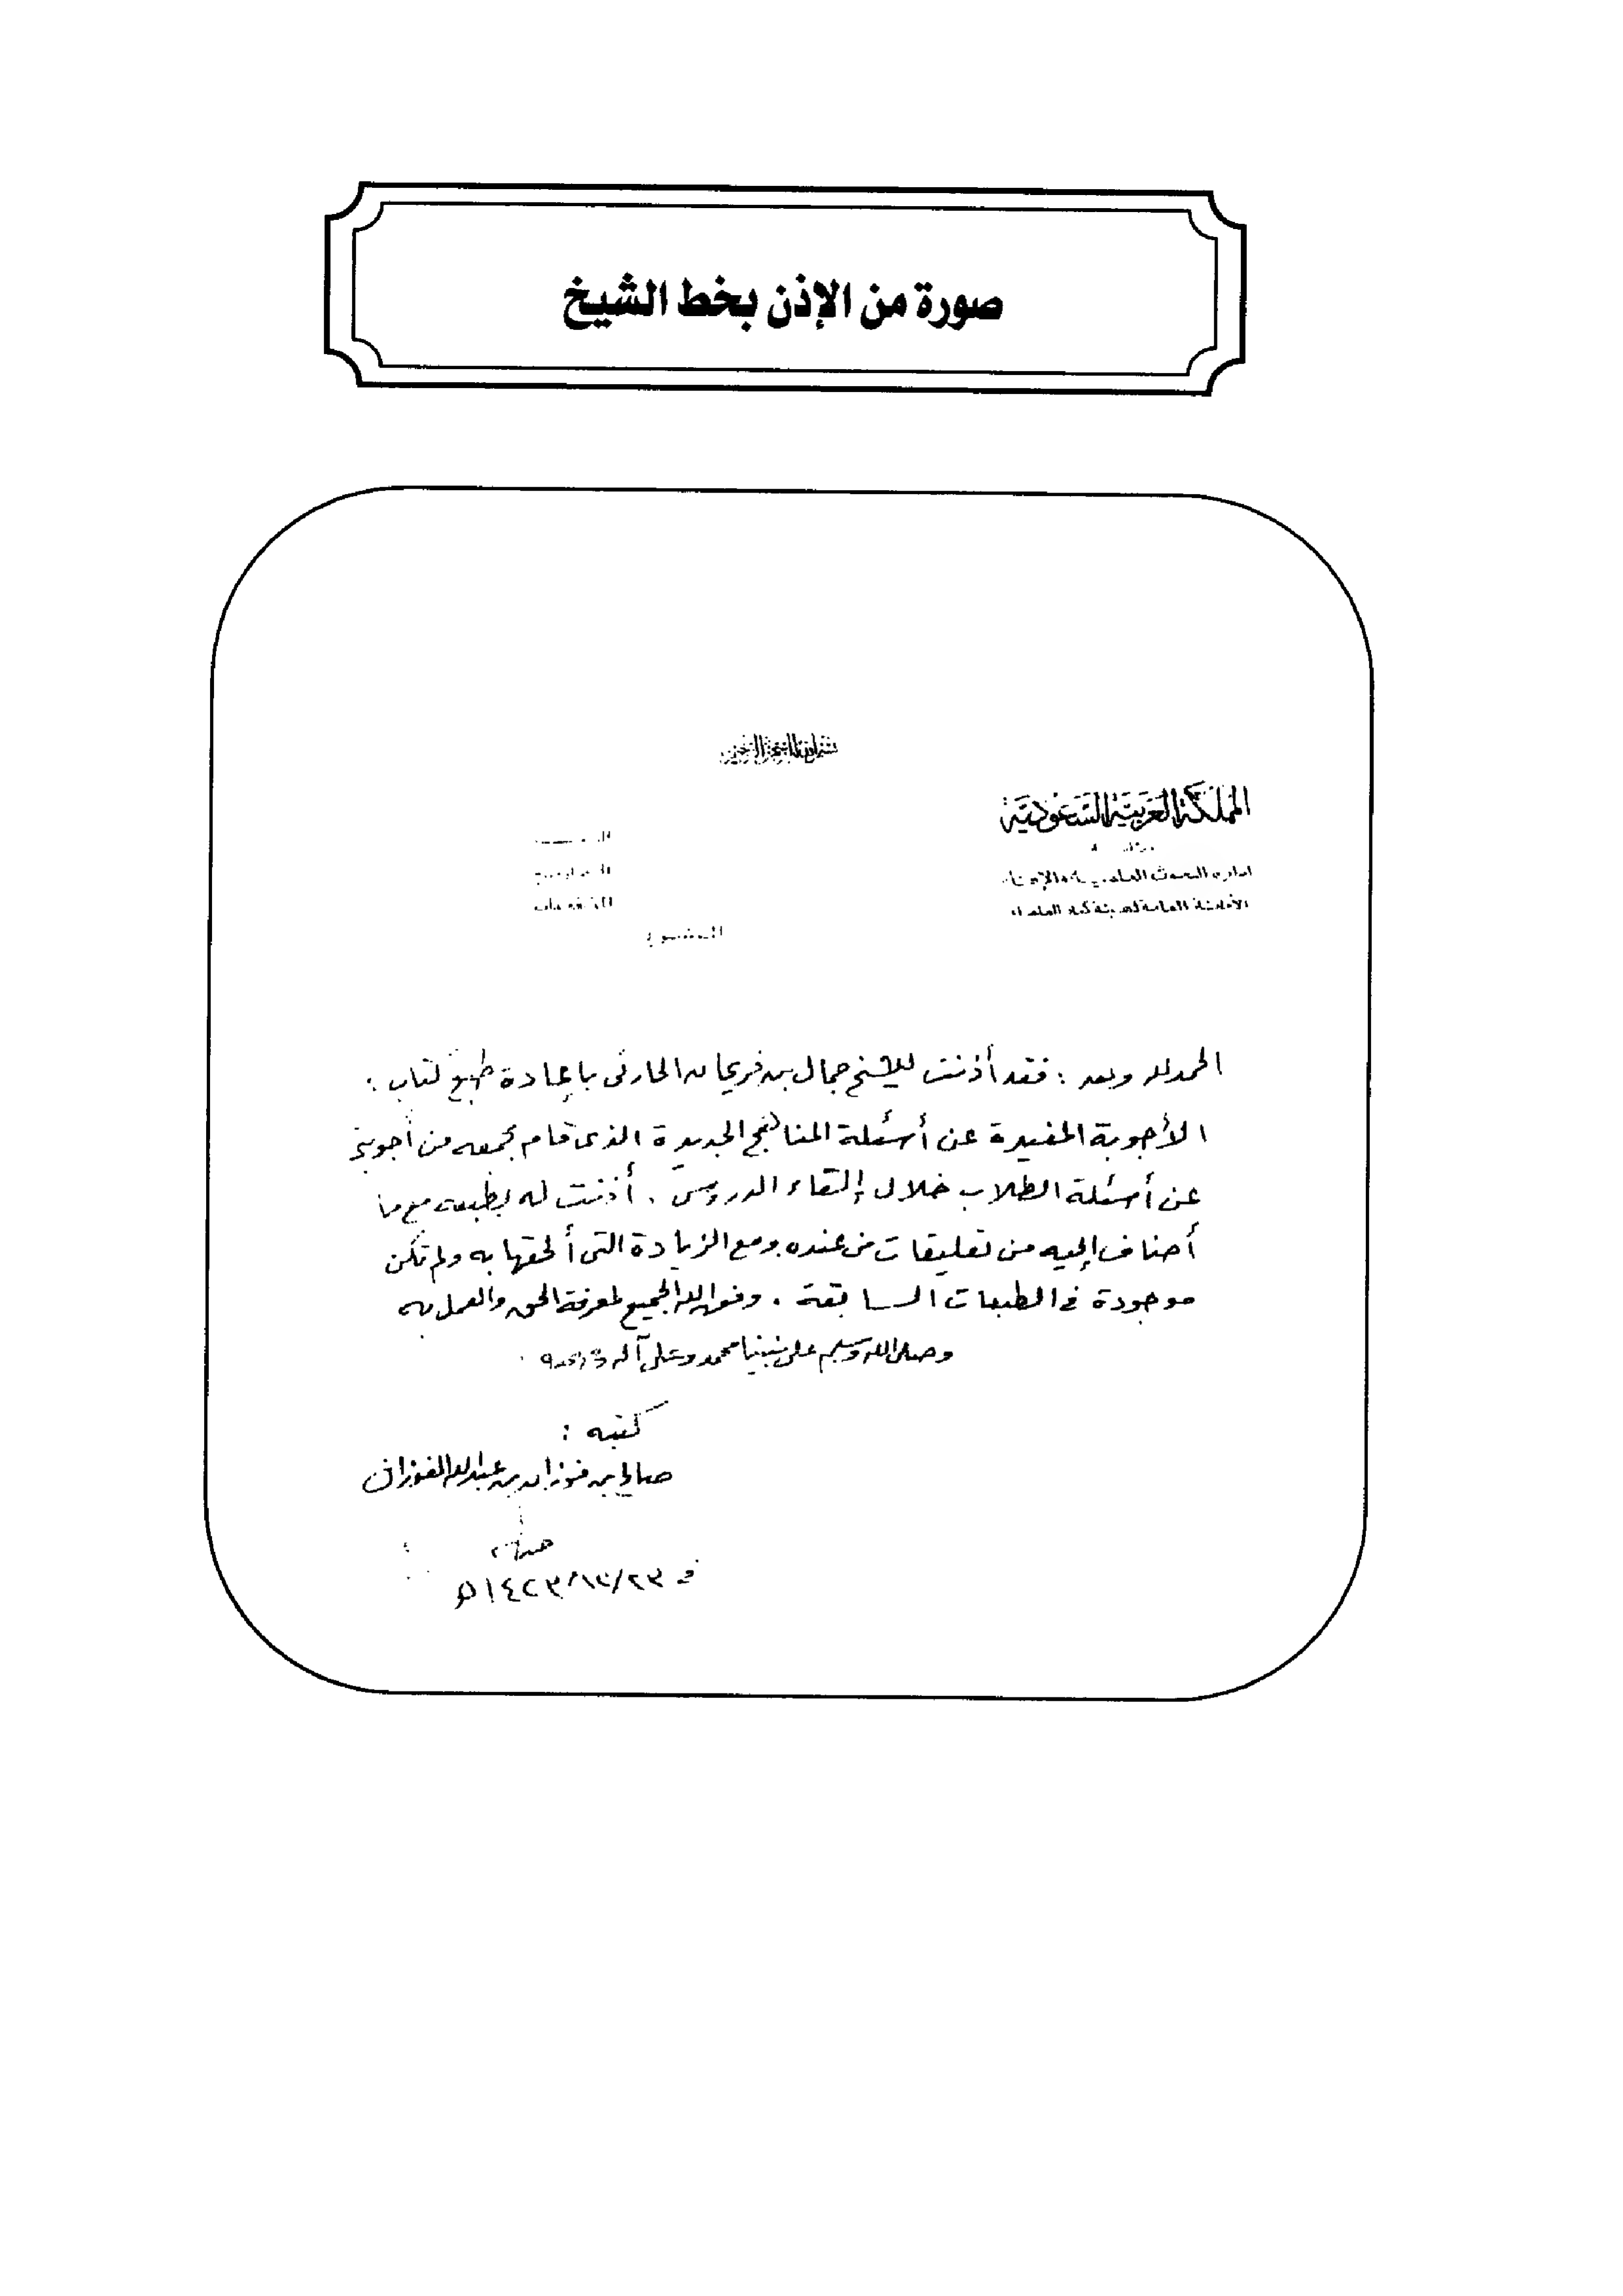 صورة من الإذن بخط الشيخ
بسم الله الرحمن الرحيم
المملكة العربية السعودية
إدارة البحوث العلمية والإفتاء
الأمانة العامة لهيئة كبار العلماء
الموضوع
الحمد لله وبعد : فقد أذنت للشيخ جمال بن فريحان الحارثي بإعادة طبع كتاب :
الأجوبة المفيدة عن أسئلة المناهج الجديدة الذي قام بجمعه من أجوبتي
عن أسئلة الطلاب خلال إلقاء الدروس . أذنت له بطبعه مع ما
أضاف إليه من تعليقات من عنده ومع الزيادة التي ألحقها به ولم تكن
موجودة في الطبعات السابقة . وفق الله الجميع لمعرفة الحق والعمل به
وصلى الله وسلم على نبينا محمد وعلى آله وصحبه .
كتبه :
صالح بن فوزان بن عبدالله الفوزان
في ٢٣/١٢/١٤٢٣ه